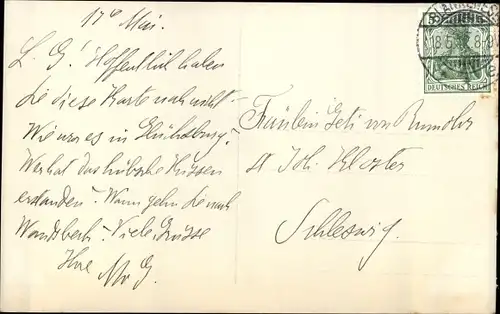 17t Mai.
L. G! Hoffentlich haben
Sie diese Karte noch nicht.
Wie war es in Glücksburg?
Wer hat das hübsche Kissen
erstanden? Wann gehn Sie nach
Wandsbeck? Viele Grüsse
Ihre M. G.
Fräulein Geti von Rumohr
St Joh. Kloster
Schleswig.
5
DEUTSCHES REICH